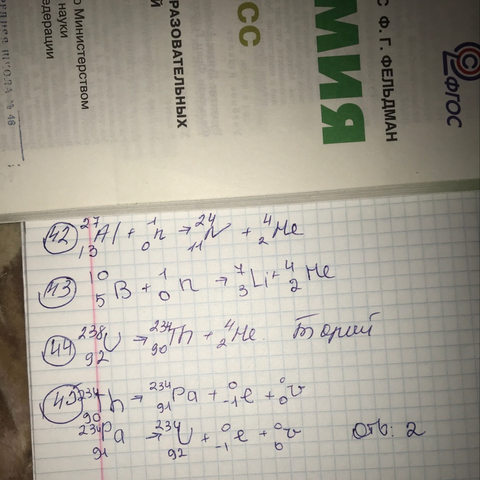 С Ф. Г. ФЕЛЬДМАН
ФГОС
МИЯ
СС
РАЗОВАТЕЛЬНЫХ
Й
о Министерством
науки
едерации
42 ²⁷₁₃Al + ¹₀n → ²⁴₁₁N + ⁴₂He
43 ¹⁰₅B + ¹₀n → ⁷₃Li + ⁴₂He
44 ²³⁸₉₂U → ²³⁴₉₀Th + ⁴₂He Торий
45 ²³⁴₉₀Th → ²³⁴₉₁Pa + ⁰₋₁e + ⁰₀ν
²³⁴₉₁Pa → ²³⁴₉₂U + ⁰₋₁e + ⁰₀ν Отв: 2